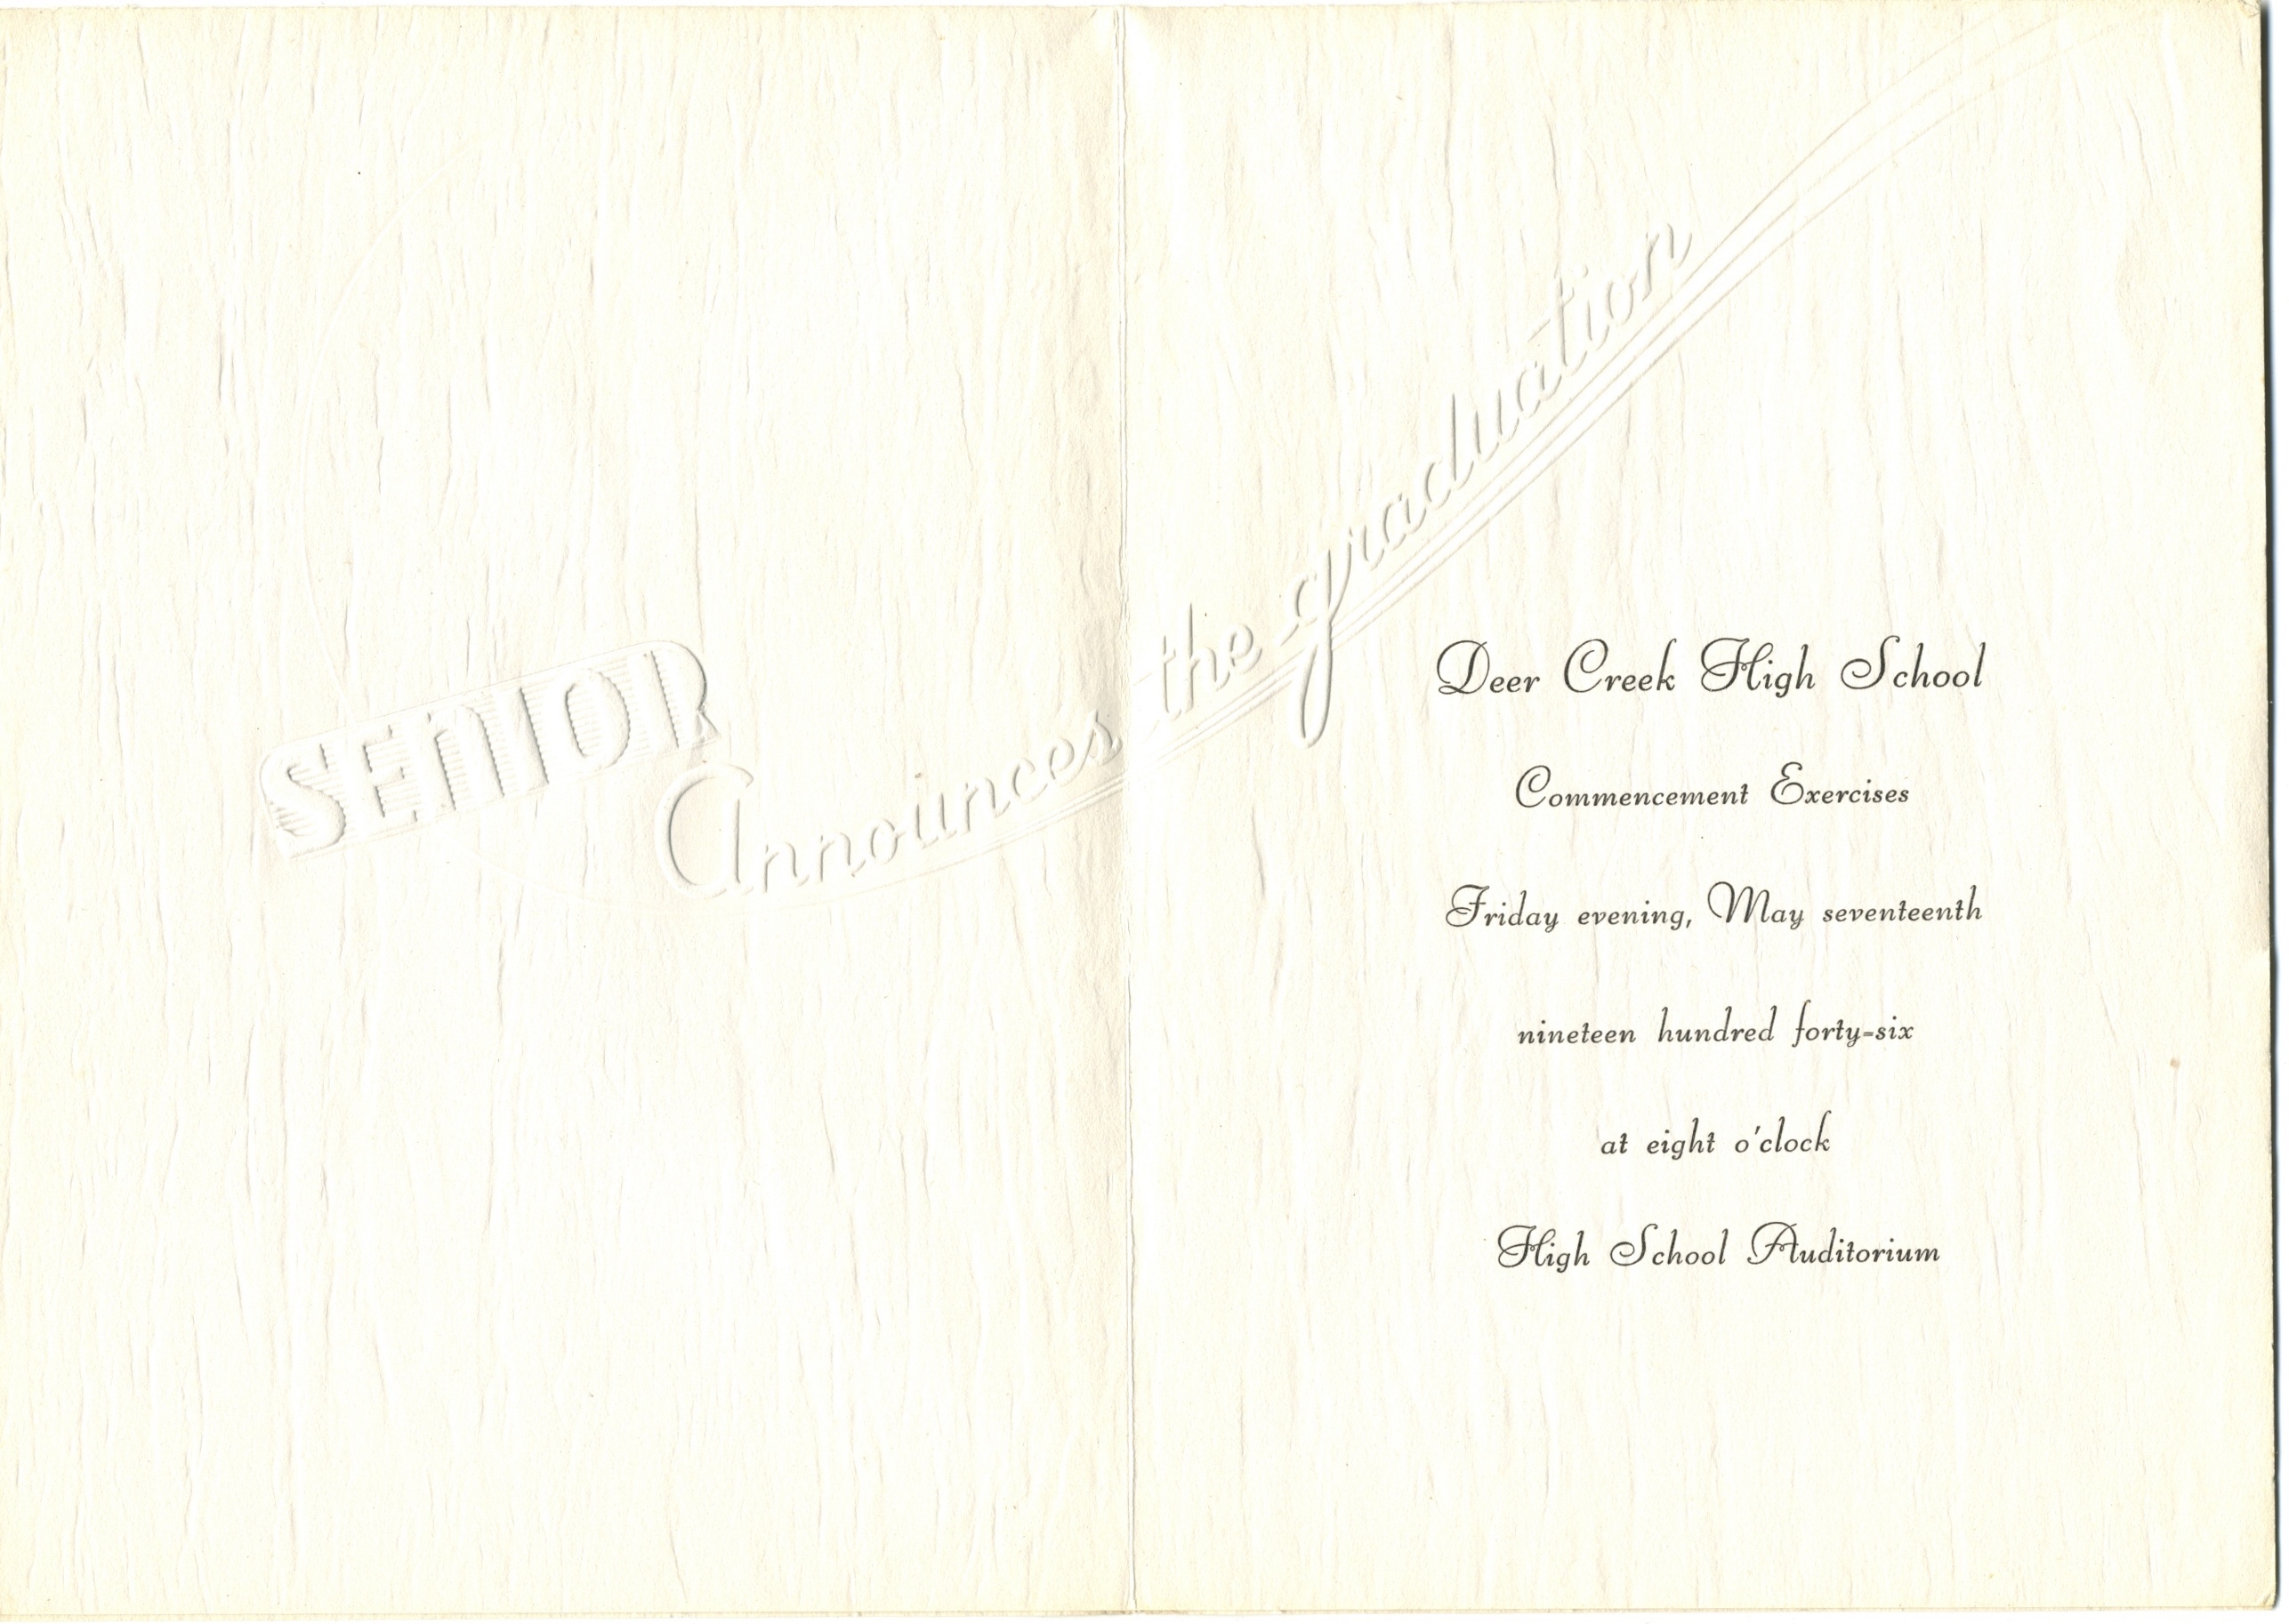 SENIOR
Announces the graduation
Deer Creek High School
Commencement Exercises
Friday evening, May seventeenth
nineteen hundred forty-six
at eight o'clock
High School Auditorium